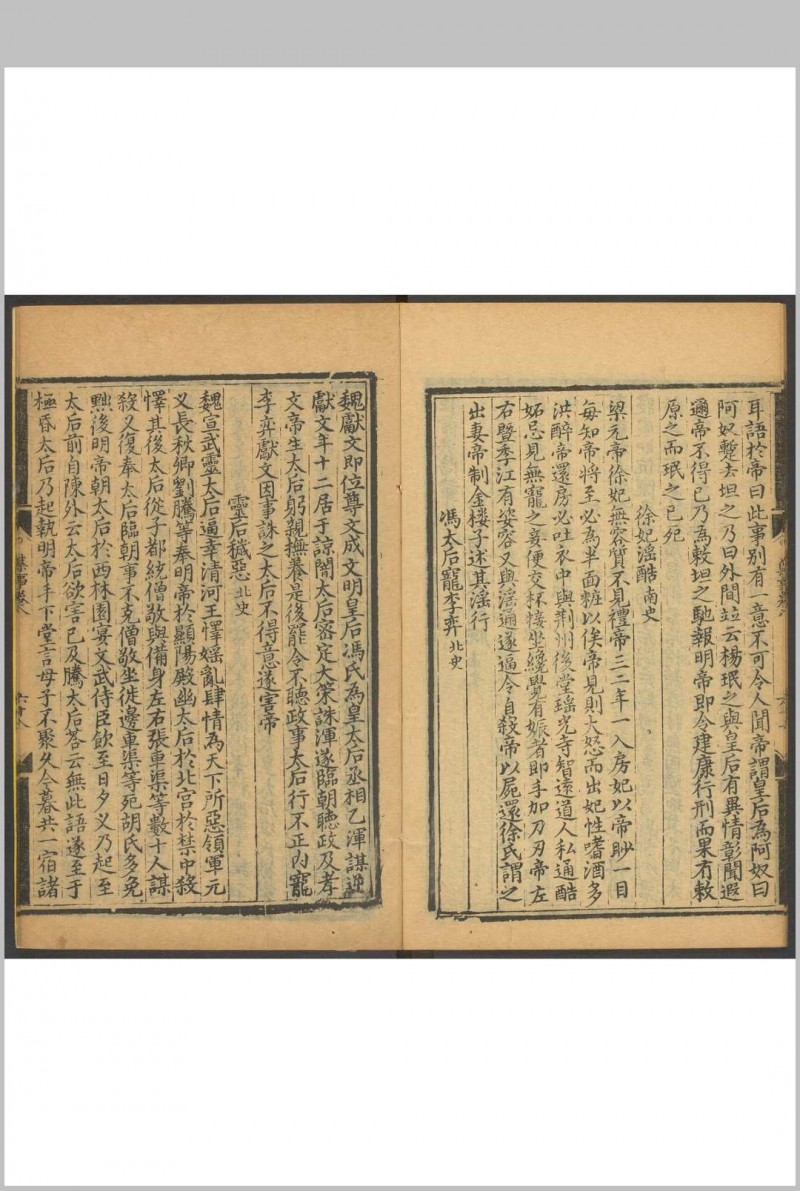 耳語於帝曰此事别有一意不可令人聞帝謂皇后為阿奴曰
阿奴蹔去坦之乃曰外間竝云楊珉之與皇后有異情彰聞遐
邇帝不得已乃為敕坦之馳報明帝即令建康行刑而果有敕
原之而珉之已死
徐妃滛酷南史
梁元帝徐妃無容質不見禮帝三二年一入房妃以帝眇一目
每知帝將至必為半面粧以俟帝見則大怒而出妃性嗜酒多
洪醉帝還房必吐衣中與荆州後堂瑶光寺智遠道人私通酷
妬忌見無寵之妾便交杯接坐纔覺有娠者即手加刀刃帝左
右暨季江有姿容又與滛通遂逼令自殺帝以屍還徐氏謂之
出妻帝制金樓子述其滛行
馮太后寵李弈北史
魏獻文即位尊文成文明皇后馮氏為皇太后丞相乙渾謀逆
獻文年十二居于諒闇太后密定大策誅渾遂臨朝聴政及孝
文帝生太后躬親撫養是後罷令不聴政事太后行不正内寵
李弈獻文因事誅之太后不得意遂害帝
靈后穢惡北史
魏宣武靈太后逼幸清河王懌婬亂肆情為天下所惡領軍元
义長秋卿劉騰等奉明帝於顯陽殿幽太后於北宫於禁中殺
懌其後太后從子都統僧敬與備身左右張車渠等數十人謀
殺义復奉太后臨朝事不克僧敬坐徙邊車渠等死胡氏多免
黜後明帝朝太后於西林園宴文武侍臣飲至日夕义乃起至
太后前自陳外云太后欲害己及騰太后荅云無此語遂至于
極昏太后乃起執明帝手下堂言母子不聚久今暮共一宿諸